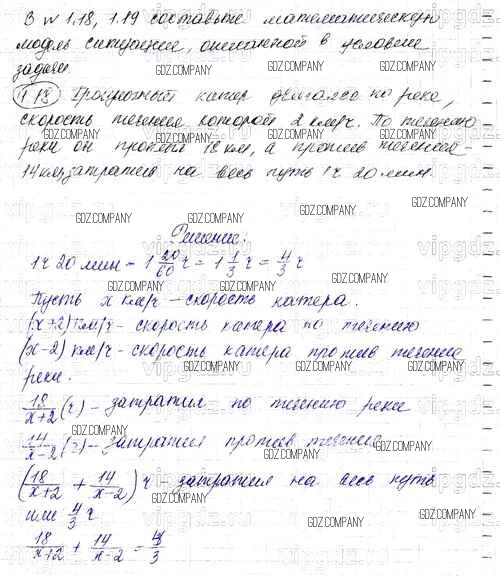 В № 1.18, 1.19 составьте математическую
модель ситуации, описанной в условии
задачи.
1.18 Прогулочный катер двигался по реке,
скорость течения которой 2 км/ч. По течению
реки он проплыл 18 км, а против течения -
14 км, затратив на весь путь 1ч 20 мин.
Решение:
1ч 20 мин = 1 20/60 ч = 1 1/3 ч = 4/3 ч
Пусть x км/ч - скорость катера.
(x+2) км/ч - скорость катера по течению
(x-2) км/ч - скорость катера против течения
реки.
18/(x+2) (ч) - затратил по течению реки
14/(x-2) (ч) - затратил против течения
(18/(x+2) + 14/(x-2)) ч - затратил на весь путь
или 4/3 ч
18/(x+2) + 14/(x-2) = 4/3
GDZ.COMPANY
vipgdz.ru